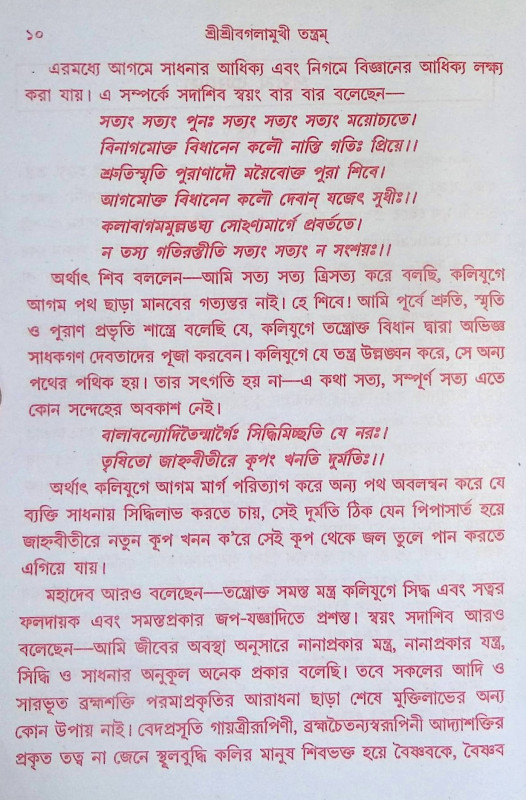 ১০ শ্রীশ্রীবগলামুখী তন্ত্রম্
এরমধ্যে আগমে সাধনার আধিক্য এবং নিগমে বিজ্ঞানের আধিক্য লক্ষ্য
করা যায়। এ সম্পর্কে সদাশিব স্বয়ং বার বার বলেছেন—
সত্যং সত্যং পুনঃ সত্যং সত্যং সত্যং ময়োচ্যতে।
বিনাগমোক্ত বিধানেন কলৌ নাস্তি গতিঃ প্রিয়ে।।
শ্রুতিস্মৃতি পুরাণাদৌ ময়ৈবোক্ত পুরা শিবে।
আগমোক্ত বিধানেন কলৌ দেবান্ যজেৎ সুধীঃ।।
কলাবাগমমুল্লঙ্ঘ্য সোহণ্যমার্গে প্রবর্ততে।
ন তস্য গতিরস্তীতি সত্যং সত্যং ন সংশয়ঃ।।
অর্থাৎ শিব বললেন—আমি সত্য সত্য ত্রিসত্য করে বলছি, কলিযুগে
আগম পথ ছাড়া মানবের গত্যন্তর নাই। হে শিবে! আমি পূর্বে শ্রুতি, স্মৃতি
ও পুরাণ প্রভৃতি শাস্ত্রে বলেছি যে, কলিযুগে তন্ত্রোক্ত বিধান দ্বারা অভিজ্ঞ
সাধকগণ দেবতাদের পূজা করবেন। কলিযুগে যে তন্ত্র উল্লঙ্ঘন করে, সে অন্য
পথের পথিক হয়। তার সৎগতি হয় না—এ কথা সত্য, সম্পূর্ণ সত্য এতে
কোন সন্দেহের অবকাশ নেই।
বালাবন্যোদিতৈন্মার্গৈঃ সিদ্ধিমিচ্ছতি যে নরঃ।
তৃষিতো জাহ্নবীতীরে কূপং খনতি দুর্মতিঃ।।
অর্থাৎ কলিযুগে আগম মার্গ পরিত্যাগ করে অন্য পথ অবলম্বন করে যে
ব্যক্তি সাধনায় সিদ্ধিলাভ করতে চায়, সেই দুর্মতি ঠিক যেন পিপাসার্ত হয়ে
জাহ্নবীতীরে নতুন কূপ খনন ক'রে সেই কূপ থেকে জল তুলে পান করতে
এগিয়ে যায়।
মহাদেব আরও বলেছেন—তন্ত্রোক্ত সমস্ত মন্ত্র কলিযুগে সিদ্ধ এবং সত্বর
ফলদায়ক এবং সমস্তপ্রকার জপ-যজ্ঞাদিতে প্রশস্ত। স্বয়ং সদাশিব আরও
বলেছেন—আমি জীবের অবস্থা অনুসারে নানাপ্রকার মন্ত্র, নানাপ্রকার যন্ত্র,
সিদ্ধি ও সাধনার অনুকূল অনেক প্রকার বলেছি। তবে সকলের আদি ও
সারভূত ব্রহ্মশক্তি পরমাপ্রকৃতির আরাধনা ছাড়া শেষে মুক্তিলাভের অন্য
কোন উপায় নাই। বেদপ্রসূতি গায়ত্রীরূপিণী, ব্রহ্মচৈতন্যস্বরূপিনী আদ্যাশক্তির
প্রকৃত তত্ব না জেনে স্থূলবুদ্ধি কলির মানুষ শিবভক্ত হয়ে বৈষ্ণবকে, বৈষ্ণব